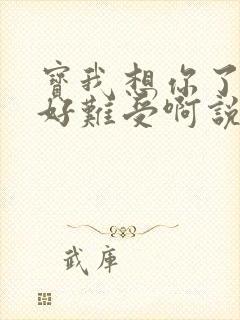 寶我想你了
好難受啊說
武庫